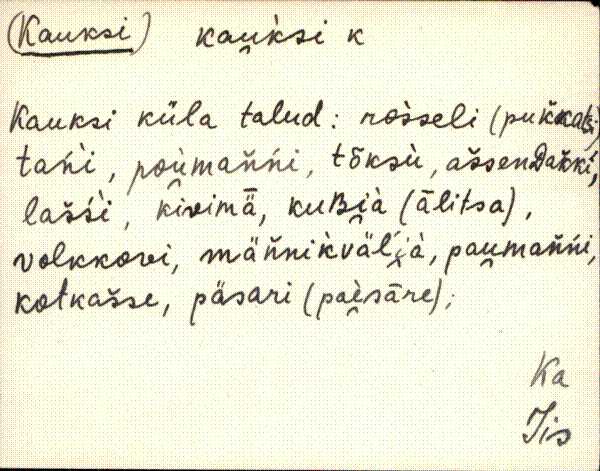 (Kauksi) kau̯k̀si k
Kauksi küla talud: ros̀seli (puk̆kats̆i),
tań̀i, poù̯mañńi, tõksù, aššenDak̆ki,
laśśi, kivimǟ, kuʙi̯à (ālitsa),
volkkovi, männik̀väĺjà, pau̯mañńi,
kotkašše, päsari (pai̯sāre);
Ka
Iis